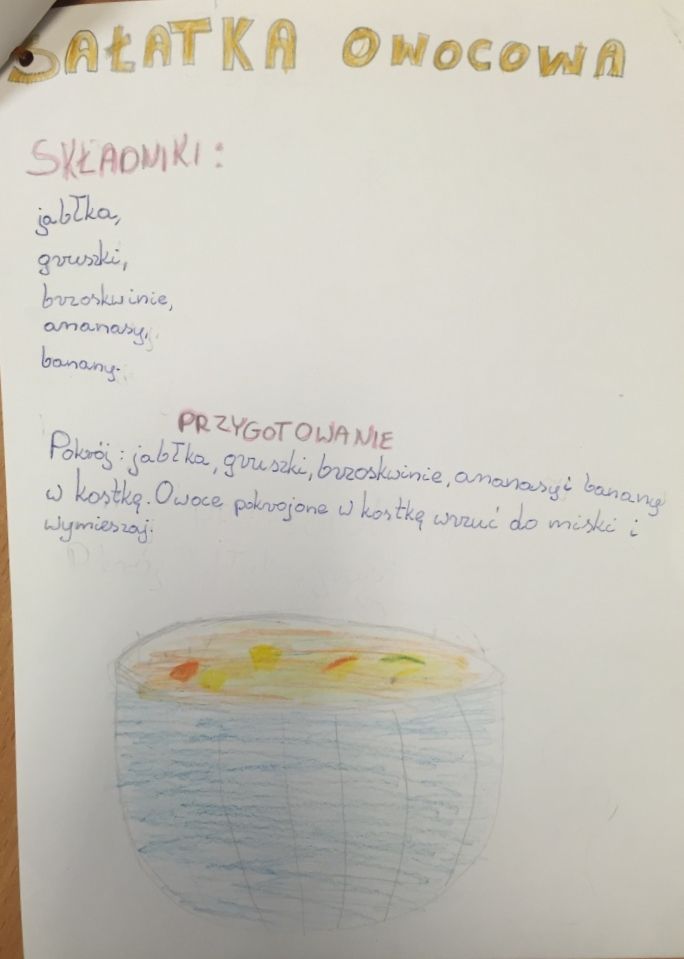 SAŁATKA OWOCOWA
SKŁADNIKI:
jabłka,
gruszki,
brzoskwinie,
ananasy,
banany.
PRZYGOTOWANIE
Pokrój: jabłka, gruszki, brzoskwinie, ananasy i banany
w kostkę. Owoce pokrojone w kostkę wrzuć do miski i
wymieszaj.